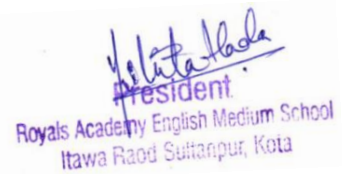 President
Royals Academy English Medium School
Itawa Raod Sultanpur, Kota